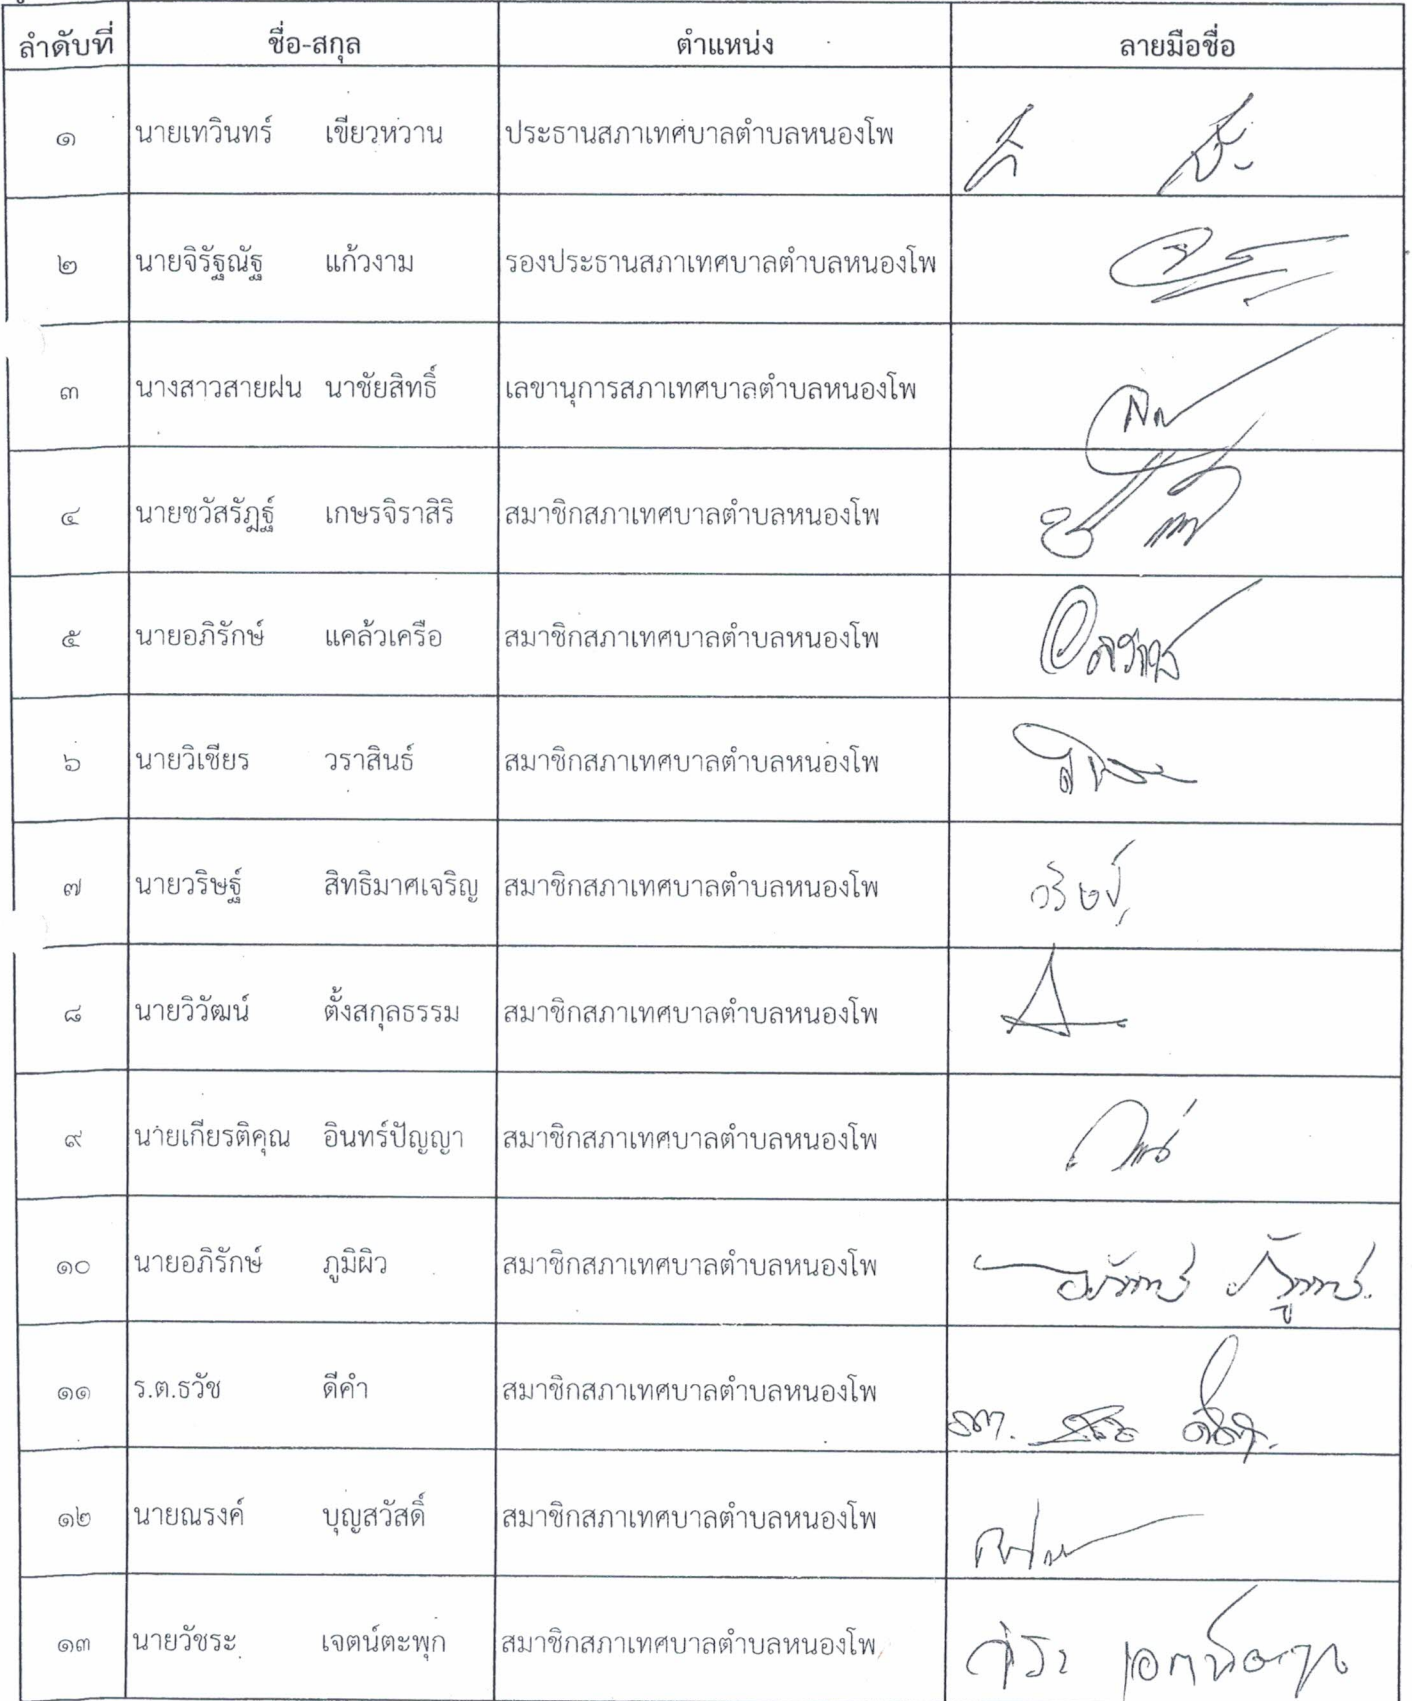 ลำดับที่ ชื่อ-สกุล ตำแหน่ง ลายมือชื่อ
๑ นายเทวินทร์ เขียวหวาน ประธานสภาเทศบาลตำบลหนองโพ
๒ นายจิรัฐณัฐ แก้วงาม รองประธานสภาเทศบาลตำบลหนองโพ
๓ นางสาวสายฝน นาชัยสิทธิ์ เลขานุการสภาเทศบาลตำบลหนองโพ
๔ นายชวัสรัฏฐ์ เกษรจิราสิริ สมาชิกสภาเทศบาลตำบลหนองโพ
๕ นายอภิรักษ์ แคล้วเครือ สมาชิกสภาเทศบาลตำบลหนองโพ
๖ นายวิเชียร วราสินธ์ สมาชิกสภาเทศบาลตำบลหนองโพ
๗ นายวริษฐ์ สิทธิมาศเจริญ สมาชิกสภาเทศบาลตำบลหนองโพ วริษฐ์
๘ นายวิวัฒน์ ตั้งสกุลธรรม สมาชิกสภาเทศบาลตำบลหนองโพ
๙ นายเกียรติคุณ อินทร์ปัญญา สมาชิกสภาเทศบาลตำบลหนองโพ
๑๐ นายอภิรักษ์ ภูมิผิว สมาชิกสภาเทศบาลตำบลหนองโพ
๑๑ ร.ต.ธวัช ดีคำ สมาชิกสภาเทศบาลตำบลหนองโพ
๑๒ นายณรงค์ บุญสวัสดิ์ สมาชิกสภาเทศบาลตำบลหนองโพ
๑๓ นายวัชระ เจตน์ตะพุก สมาชิกสภาเทศบาลตำบลหนองโพ